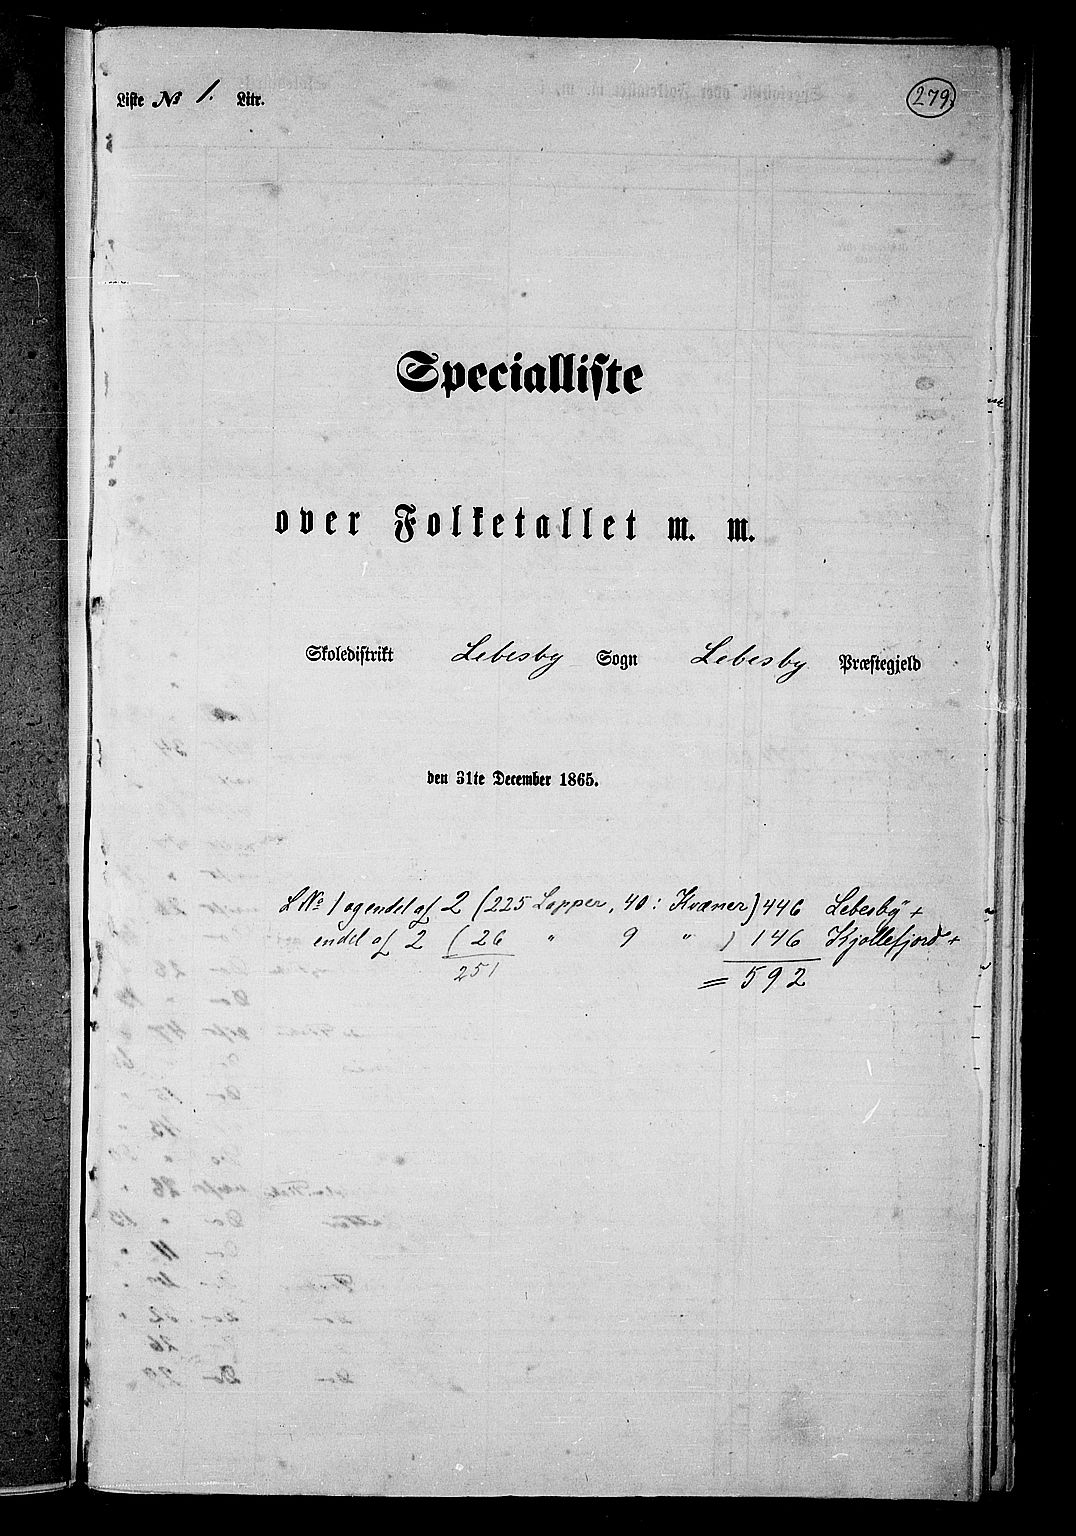 Liste № 1. Litr. 279.
Specialliste
over Folketallet m. m.
Skoledistrikt Lebesby Sogn Lebesby Præstegjeld
den 31te December 1865.
L № 1 og endel af 2 (225 Lapper, 40: Kvæner) 446 Lebesby +
endel af 2 (26 " 9 " ) 146 Kjøllefjord +
251 = 592